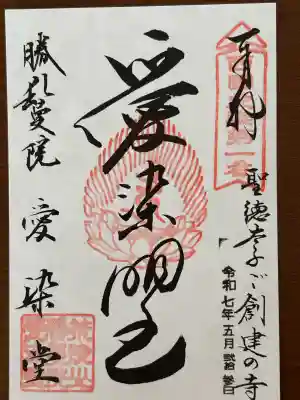 奉拝
聖徳太子ご創建の寺
令和七年五月弐拾参日
愛染明王
勝鬘院愛染堂